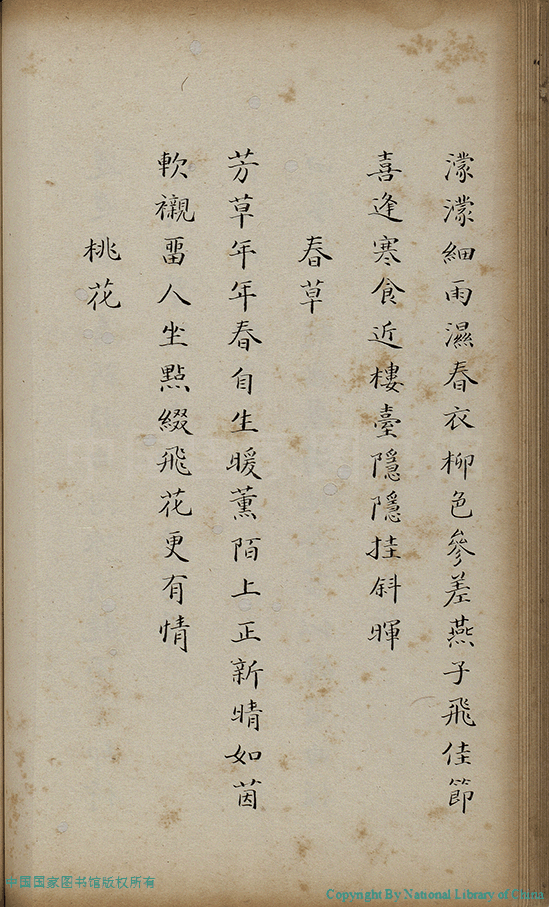 濛濛細雨濕春衣柳色參差燕子飛佳節
喜逢寒食近樓臺隱隱挂斜暉
春草
芳草年年春自生暖薰陌上正新晴如茵
軟襯畱人坐點綴飛花更有情
桃花
中国国家图书馆版权所有
Copyright By National Library of China